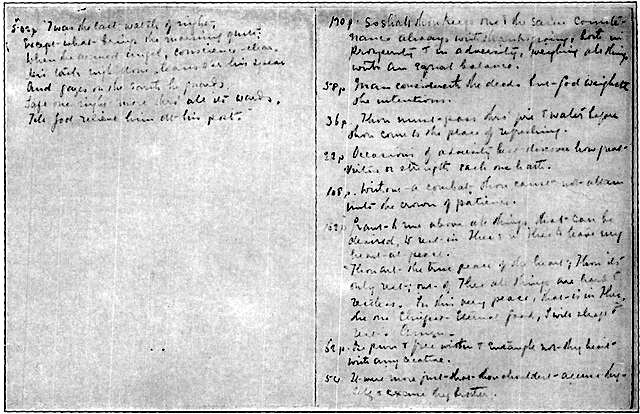 'Twas the last watch of night,
Except what brings the morning quite;
When the armed angel, conscience-clear,
His task nigh done, leans o'er his spear
And gazes on the earth he guards,
Safe one night more thro' all its wards,
Till God relieve him at his post.
170 p. So shalt thou keep one & the same counte-
nance always, with thanksgiving, both in
prosperity & in adversity, weighing all things
with an equal balance.
58 p. Man considereth the deeds but God weigheth
the intentions.
36 p. Thou must pass thro' fire & water before
thou come to the place of refreshing.
22 p. Occasions of adversity best discover how great
virtue or strength each one hath.
108 p. Without a combat thou canst not attain
unto the crown of patience.
Grant to me above all things that can be
desired, to rest in Thee & in Thee to have my
heart at peace.
Thou art the true peace of the heart; Thou its
only rest; out of Thee all things are hard &
restless. In this very peace, that is in Thee,
the one Chiefest Eternal Good, I will sleep &
rest. Amen.
Be pure & free within & entangle not thy heart
with any creature.
It were more just that thou shouldest accuse thy-
self & excuse thy brother.